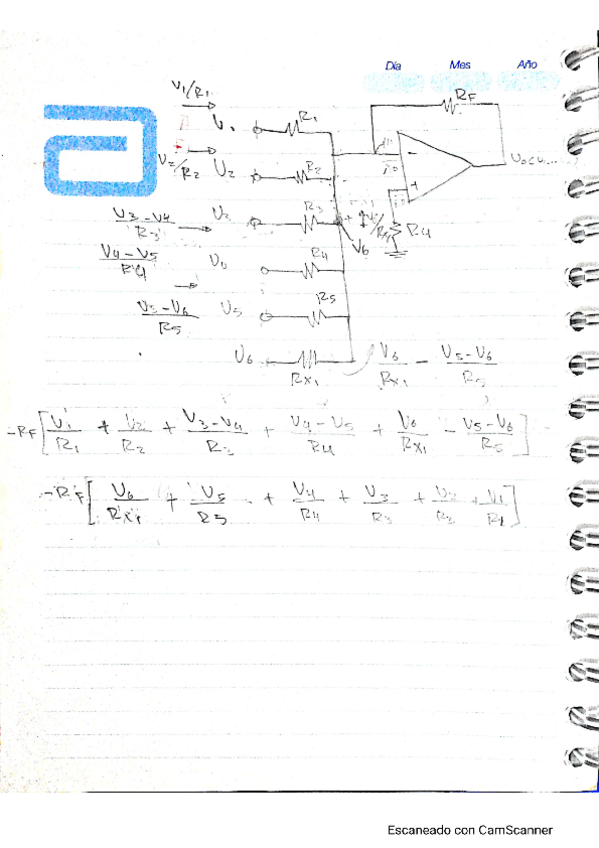 Día Mes Año
V1/R1
V1 R1 RF
V2/R2 V2 R2 - Vo
(V3-V4)/R3 V3 R3 + R4
V6
(V4-V5)/R4 V4 R4
(V5-V6)/R5 V5 R5
V6 Rx1 V6/Rx1 - (V5-V6)/R5
-RF[V1/R1 + V2/R2 + (V3-V4)/R3 + (V4-V5)/R4 + V6/Rx1 - (V5-V6)/R5]
-RF[V6/Rx1 + V5/R5 + V4/R4 + V3/R3 + V2/R2 + V1/R1]
Escaneado con CamScanner